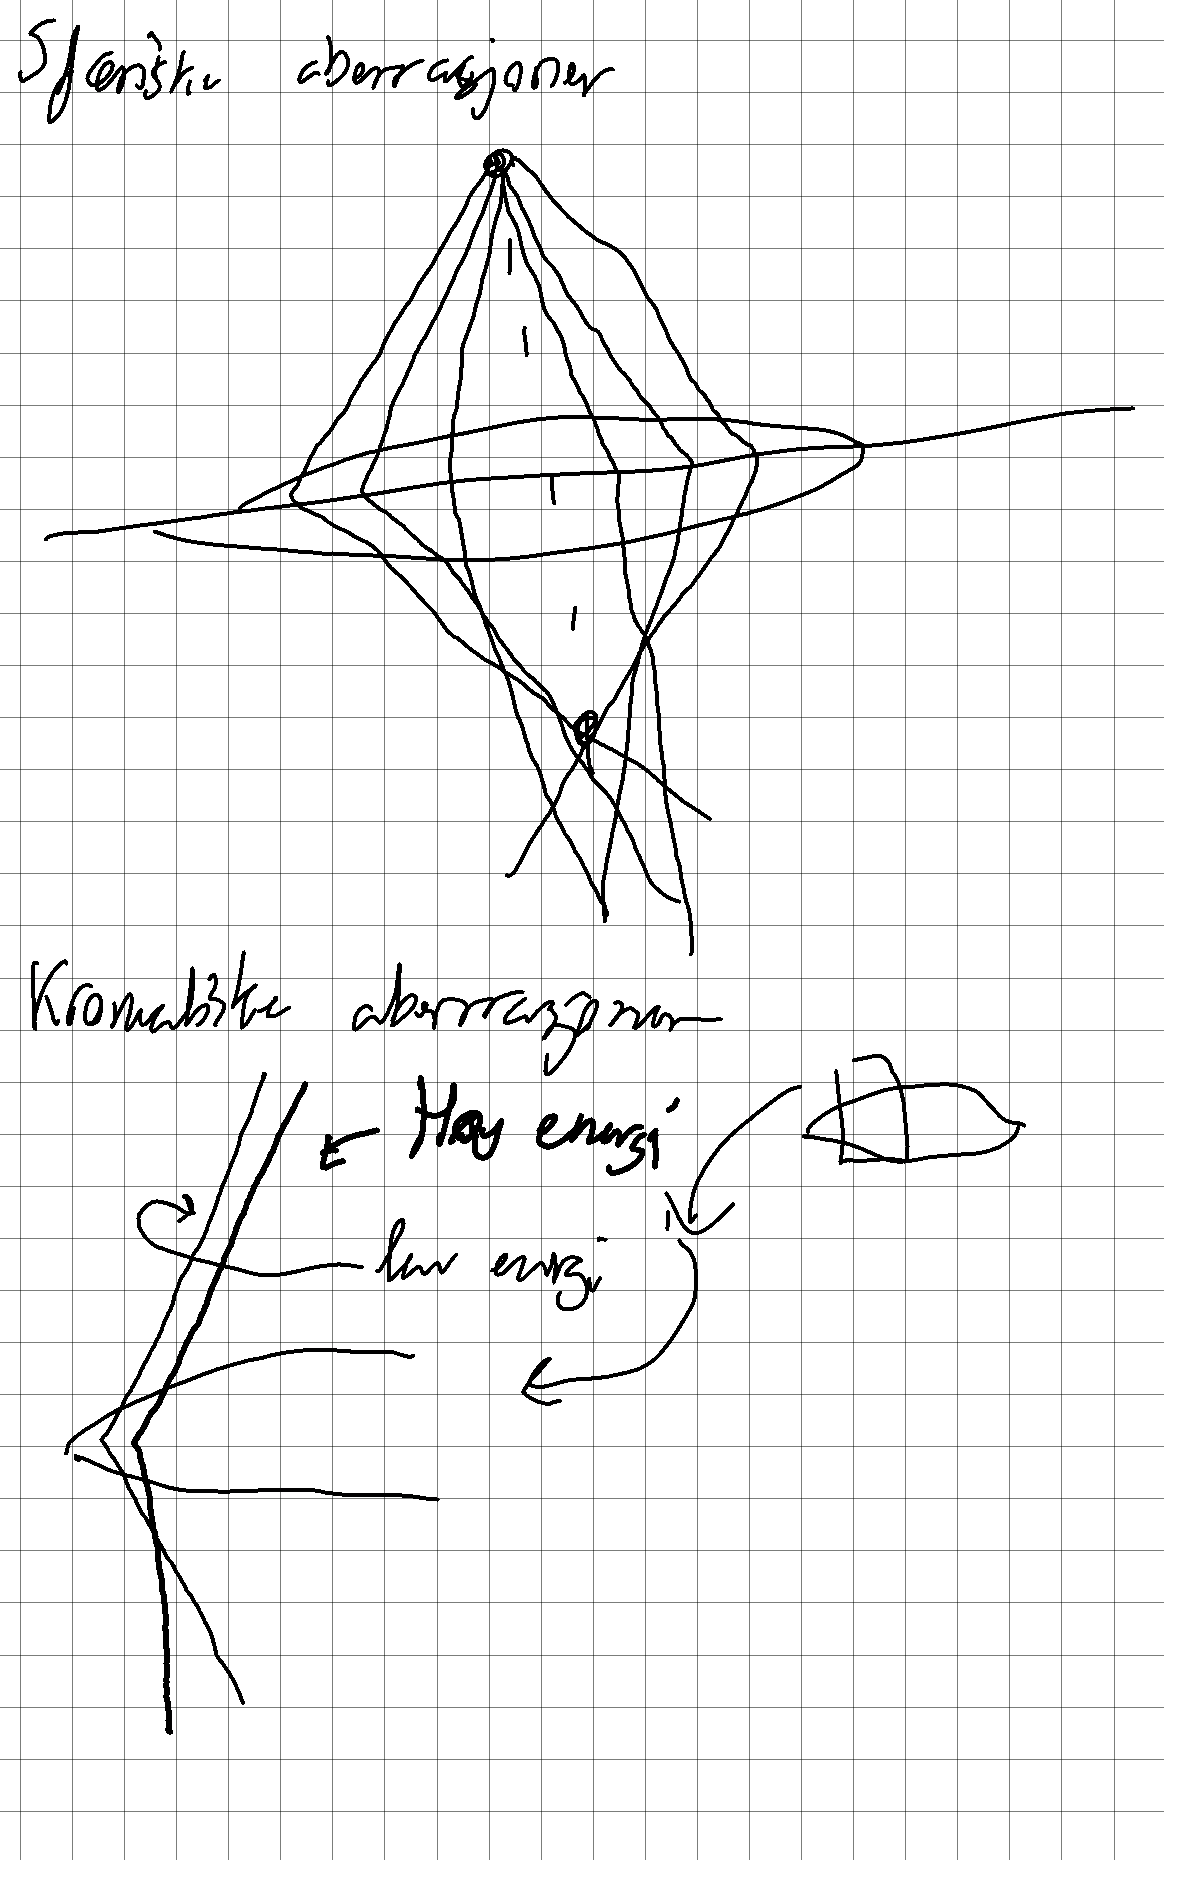 Sfæriske aberrasjoner
Kromatiske aberrasjoner
Høy energi
lav energi